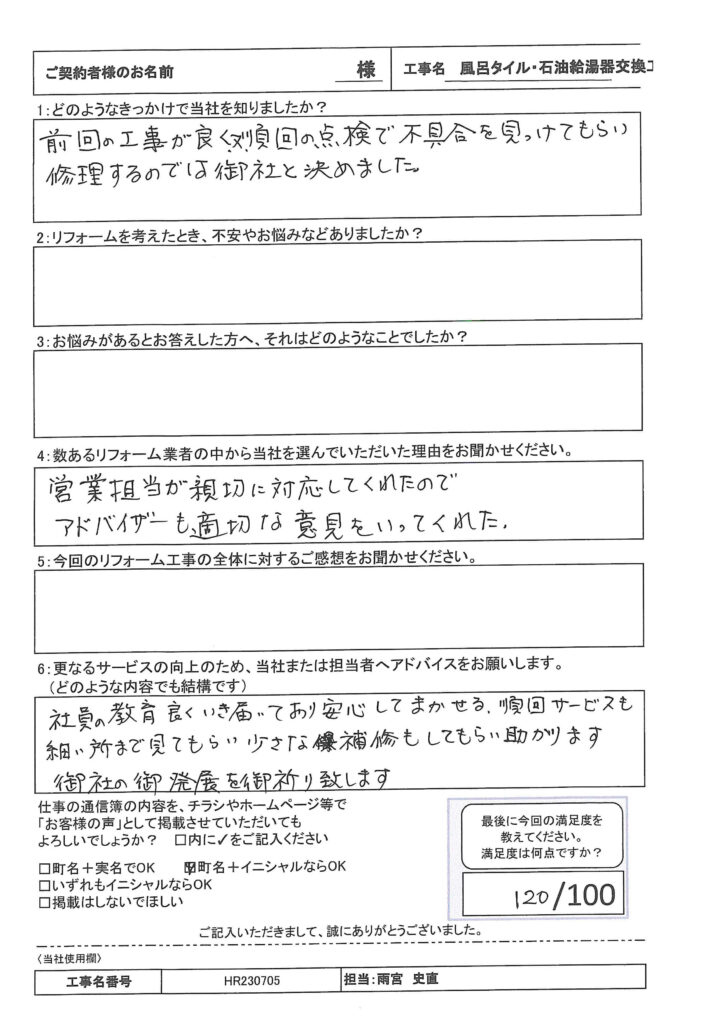 ご契約者様のお名前 様 工事名 風呂タイル・石油給湯器交換工
1:どのようなきっかけで当社を知りましたか?
前回の工事が良く又順回の点検で不具合を見つけてもらい
修理するのでは御社と決めました。
2:リフォームを考えたとき、不安やお悩みなどありましたか?
3:お悩みがあるとお答えした方へ、それはどのようなことでしたか?
4:数あるリフォーム業者の中から当社を選んでいただいた理由をお聞かせください。
営業担当が親切に対応してくれたので
アドバイザーも適切な意見をいってくれた.
5:今回のリフォーム工事の全体に対するご感想をお聞かせください。
6:更なるサービスの向上のため、当社または担当者へアドバイスをお願いします。
(どのような内容でも結構です)
社員の教育良くいき届いており安心してまかせる.順回サービスも
細い所まで見てもらい少さな補修もしてもらい助かります
御社の御発展を御祈り致します
仕事の通信簿の内容を、チラシやホームページ等で
「お客様の声」として掲載させていただいても
よろしいでしょうか? □内に✓をご記入ください
□町名+実名でOK ☑町名+イニシャルならOK
□いずれもイニシャルならOK
□掲載はしないでほしい
最後に今回の満足度を
教えてください。
満足度は何点ですか?
120/100
ご記入いただきまして、誠にありがとうございました。
〈当社使用欄〉
工事名番号 HR230705 担当:雨宮 史直